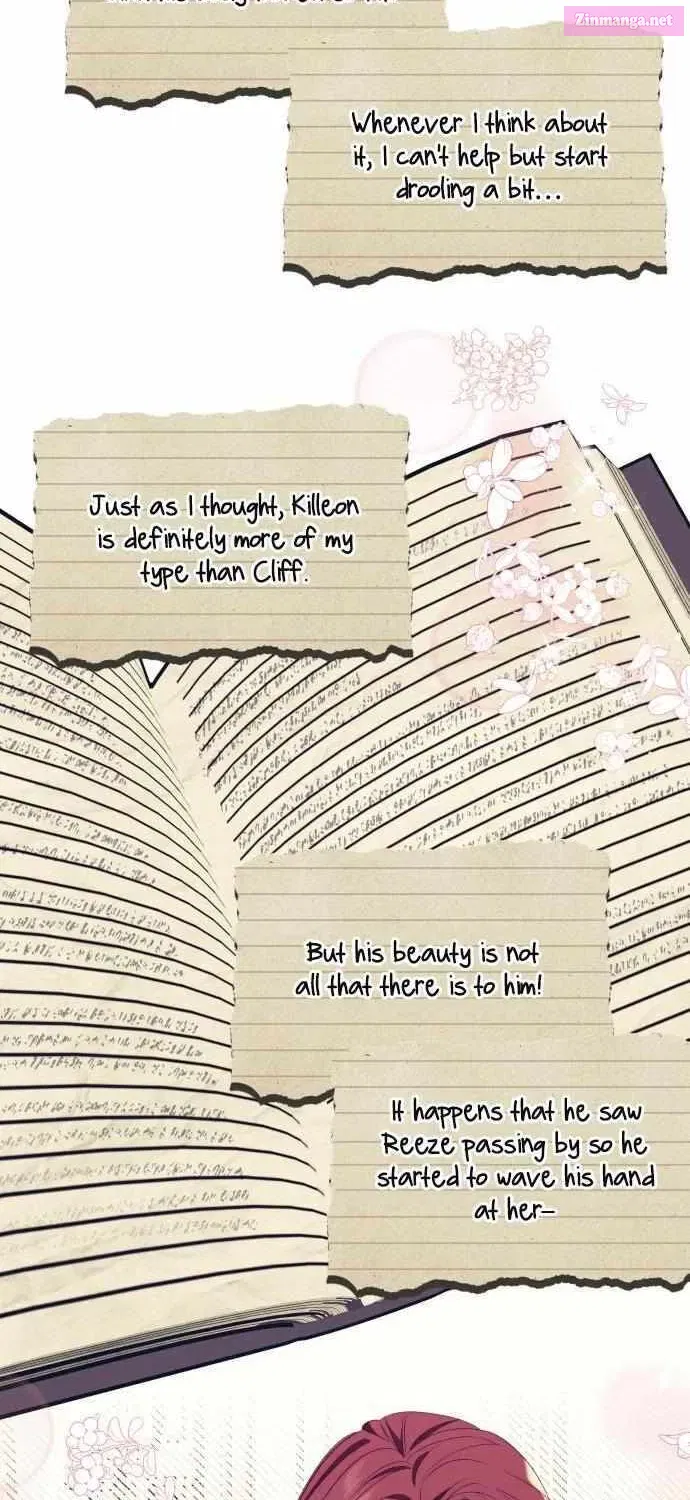 Zinmanga.net
Whenever I think about
it, I can't help but start
drooling a bit...
Just as I thought, Killeon
is definitely more of my
type than Cliff.
But his beauty is not
all that there is to him!
It happens that he saw
Reeze passing by so he
started to wave his hand
at her–